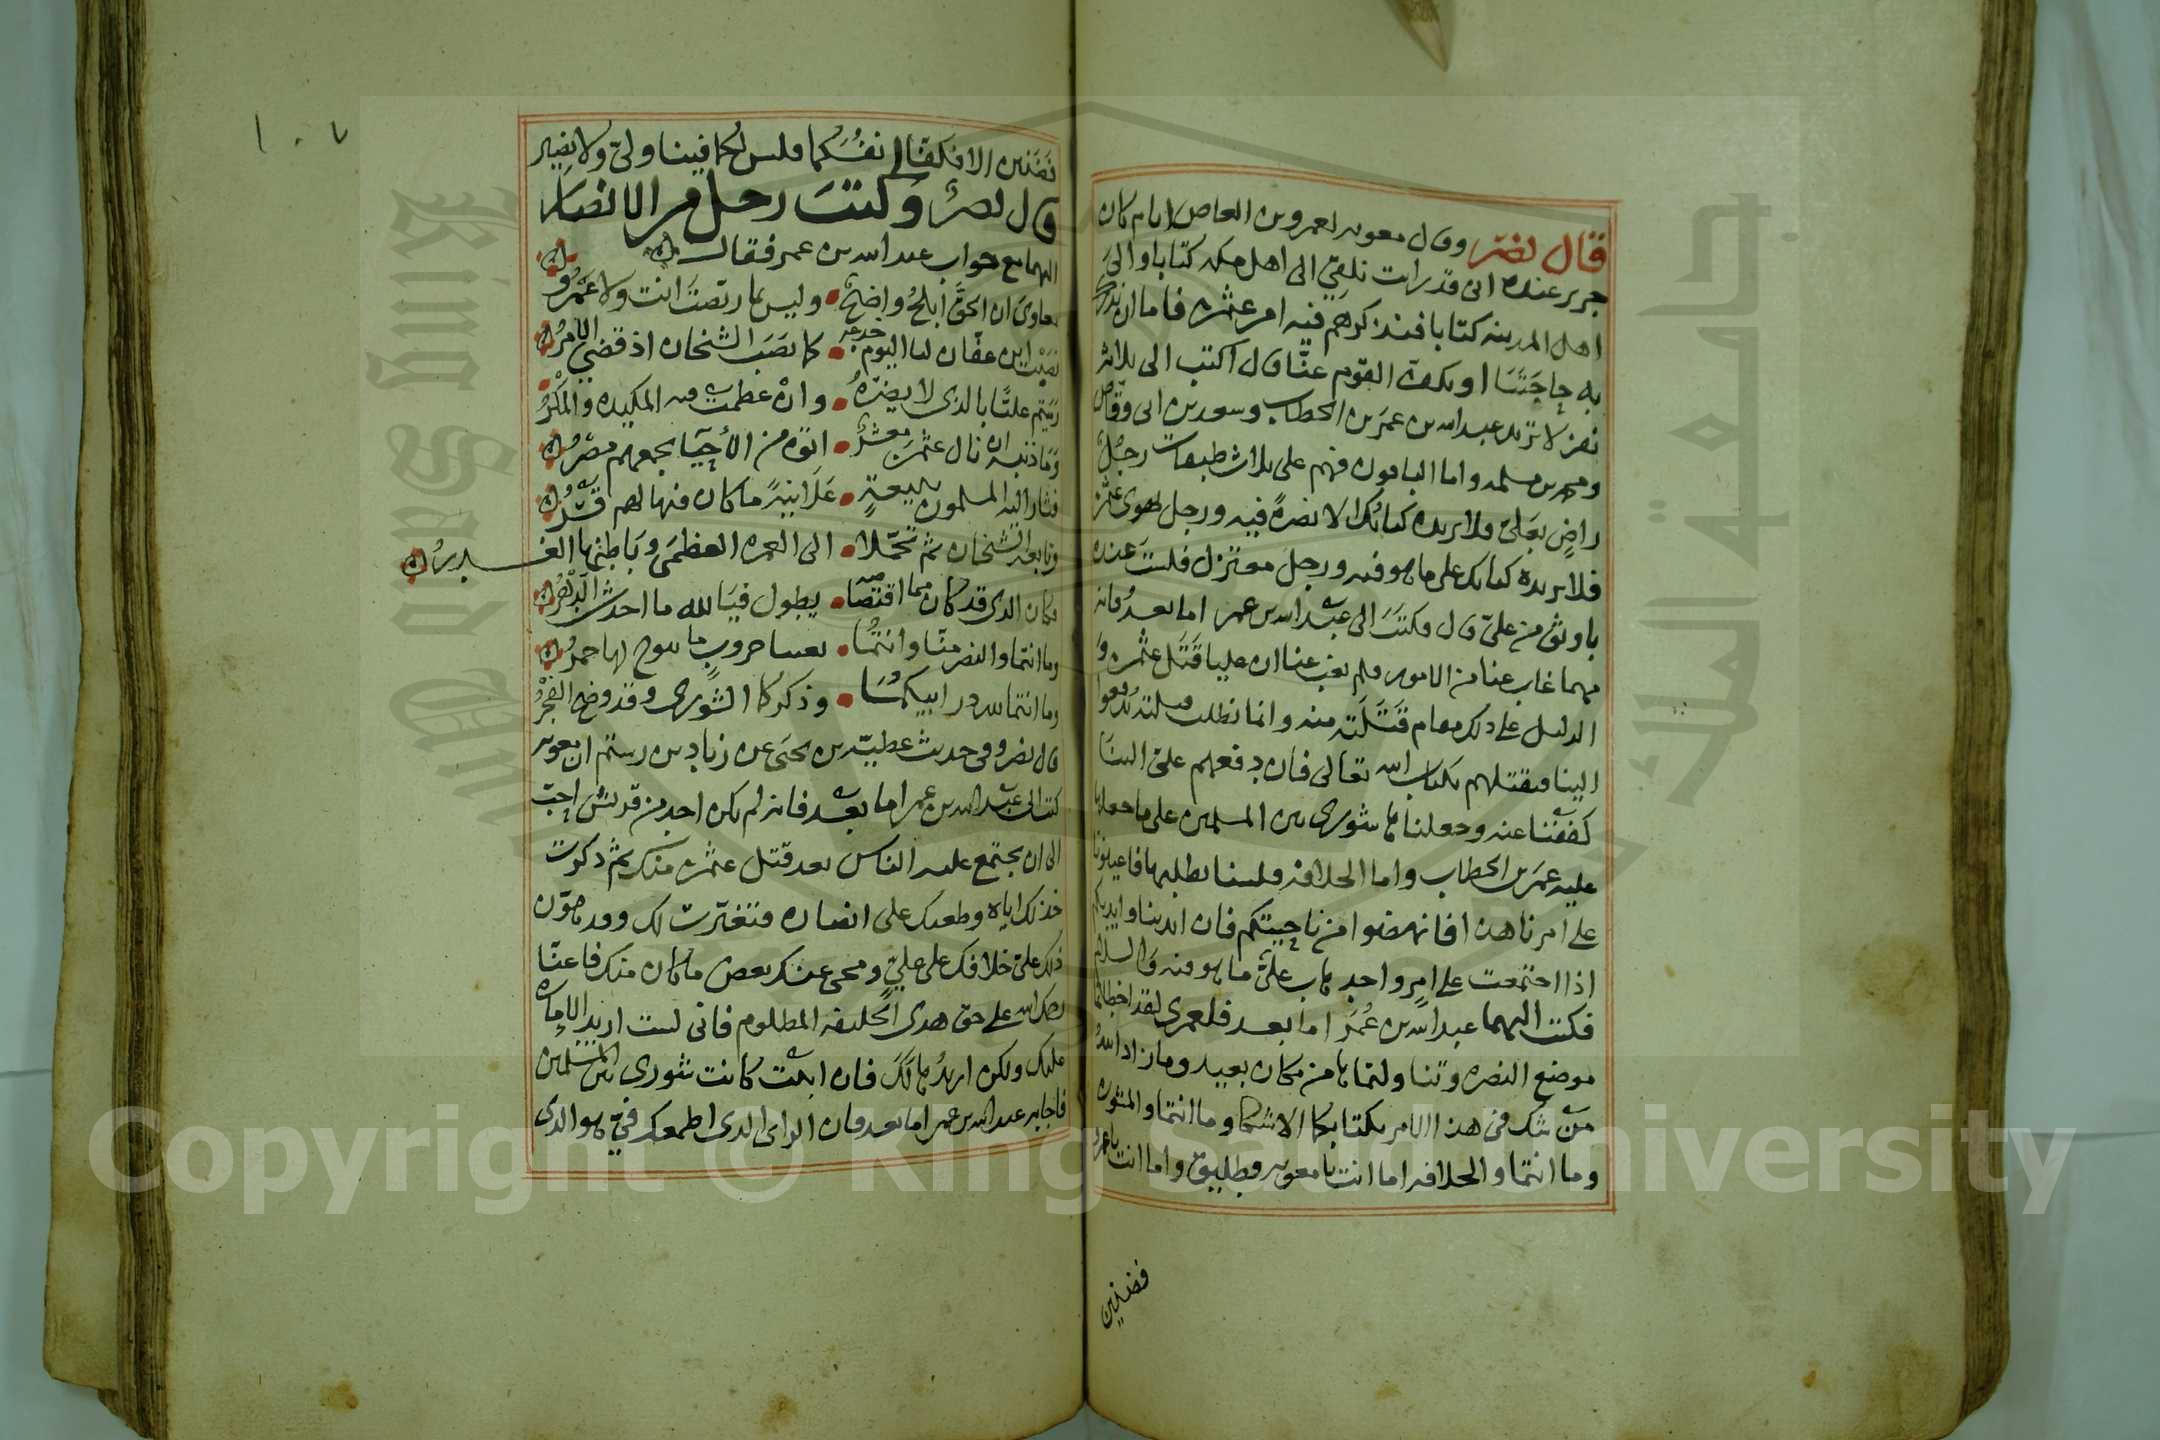 قال نصر وقال معويه لعمرو بن العاص ايام كان
جرير عنده انى قد رايت نلقى الى اهل مكه كتابا والى
اهل المدينه كتابا فنذكرهم فيه امر عثمن فاما ان ندرك
به حاجتنا او يكف القوم عنا قال اكتب الى ثلاثه
نفر لا تريد عبد الله بن عمر بن الخطاب وسعد بن ابى وقاص
ومحمد بن مسلمه واما الباقون فهم على ثلاث طبقات رجل
راض بعلى فلا يريده كتابك الا نصرة فيه ورجل يهوى عثمن
فلا يريده كتابك على ما هو فيه ورجل معتزل فلست عنده
باوثق من على قال فكتب الى عبد الله بن عمر اما بعد فانه
مهما غاب عنا من الامور فلم يغب عنا ان عليا قتل عثمن و
الدليل على ذلك مقام قتلته منه وانما نطلب قتلته يدفعوا
الينا فنقتلهم بكتاب الله تعالى فان دفعهم على الينا
كففنا عنه وجعلناها شورى بين المسلمين على ما جعلها
عليه عمر بن الخطاب واما الخلافه فلسنا نطلبها فاعينونا
على امرنا هذا فانهضوا من ناحيتكم فان ايدينا وايديكم
اذا اجتمعت على امر واحد هاب على ما هو فيه والسلام
فكتب اليهما عبد الله بن عمر اما بعد فلعمرى لقد اخطاتما
موضع النصره وتناولتماها من مكان بعيد وما زاد الله
من شك فى هذا الامر بكتابكما الا شكا وما انتما والمشوره
وما انتما والخلافه اما انت يا معويه فطليق واما انت يا عمرو
فضنين
١٠٧
فضنين الا فكفا لى نفسكما فليس لكما فينا ولى ولا نصير
قال نصر وكتب رجل من الانصار
اليهما مع جواب عبد الله بن عمر فقال
معاوى ان الحق ابلج واضح وليس بما ربصت انت ولا عمرو
نصبت ابن عفان لنا اليوم خدعه كما نصب الشيخان اذ قضى الامر
رميتم عليا بالذى لا يضره وان عظمت فيه المكيده والمكر
وما ذنبه ان نال عثمن معشر اتوه من الأحيا يجمعهم مصر
فثار اليه المسلمون ببيعة علانية ما كان فيها لهم قسر
وبايعه الشيخان ثم تحملا الى العمره العظمى وباطنها الغدر
فكان الذى قد كان مما اقتصاصه يطول فيا لله ما احدث الدهر
وما انتما والنصر منا وانتما بعيثا حروب ما يبوخ لها جمر
وما انتما لله در ابيكما وذكركما الشورى وقد وضح الفجر
قال نصر وفى حديث عطية بن يحيى عن زياد بن رستم ان معويه
كتب الى عبد الله بن عمر اما بعد فانه لم يكن احد من قريش احب
الى ان يجتمع عليه الناس بعد قتل عثمن منك ثم ذكرت
خذلك اياه وطعنك على انصاره فتغيرت لك وقد هون
ذلك على خلافك على على ومحى عنك بعض ما كان منك فاعنا
رحمك الله على حق هذا الخليفه المظلوم فانى لست اريد الاماره
عليك ولكن اريدها لك فان ابيت كانت شورى بين المسلمين
فاجابه عبد الله بن عمر اما بعد فان الراى الذى اطمعك فى هو الذى